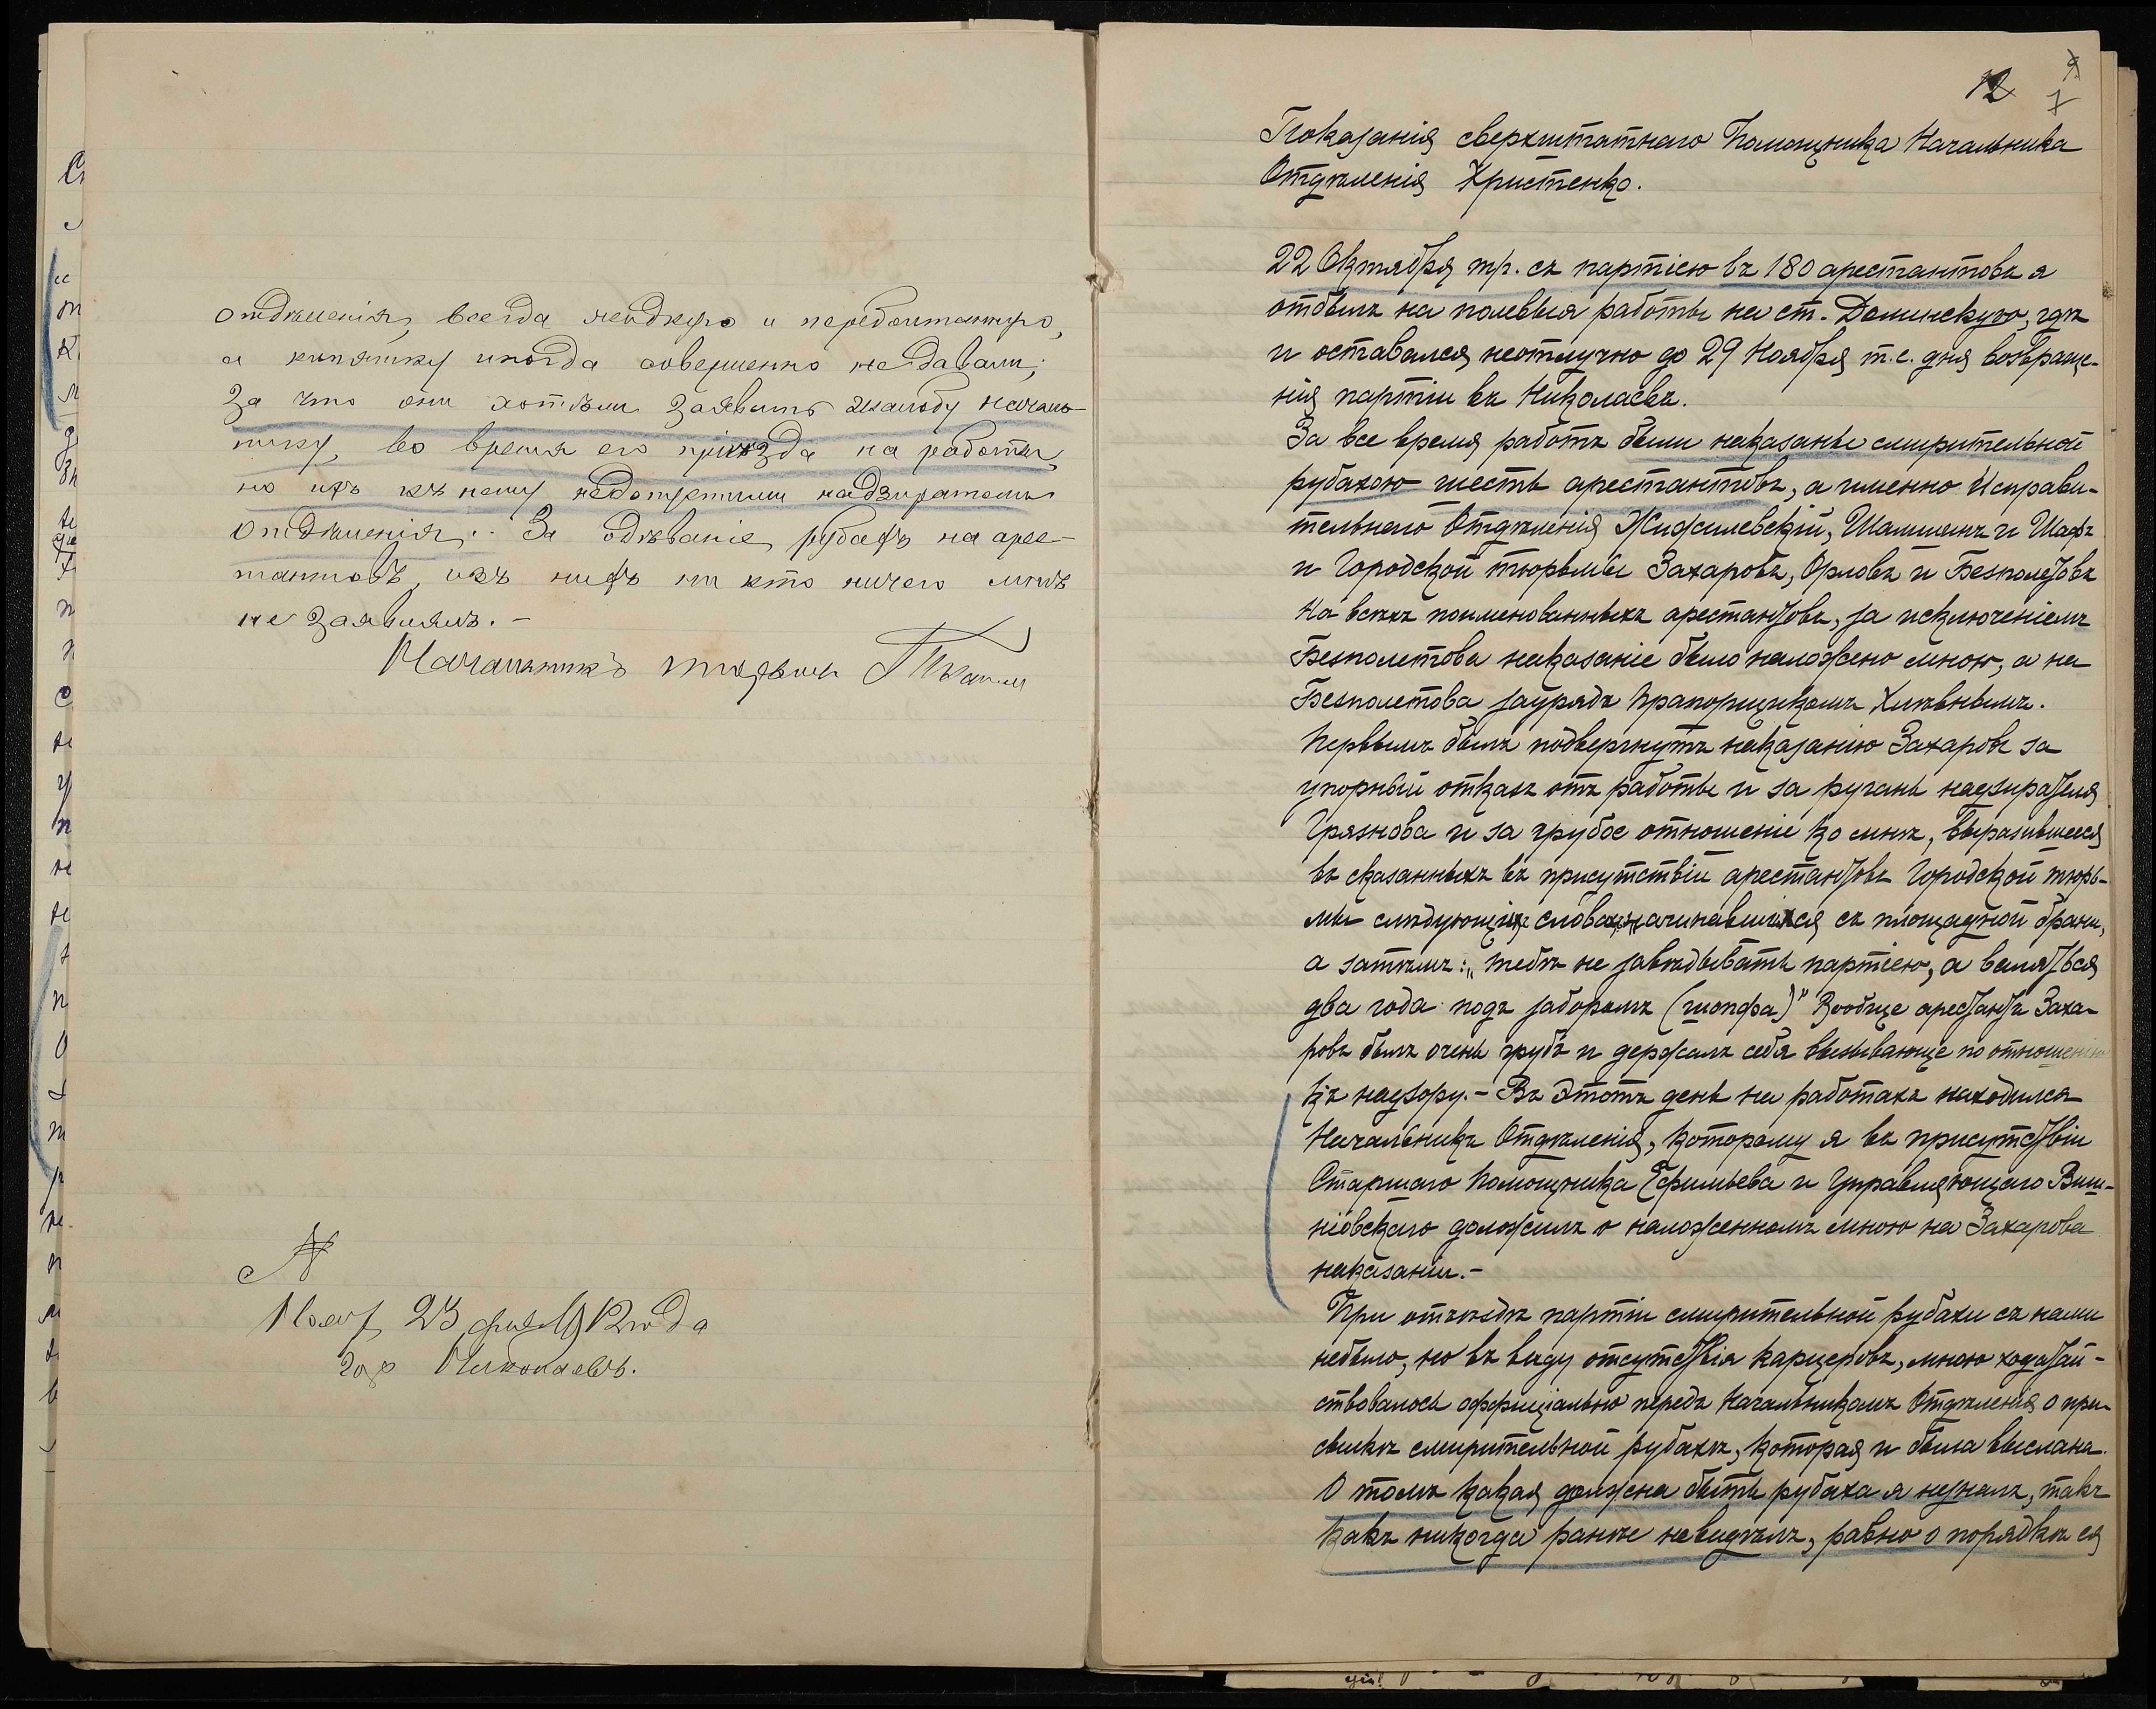 отдѣленія, всегда жидкую и переболтанную,
а кипятку иногда совершенно не давали;
За что они хотѣли заявить жалобу началь-
нику, во время его пріѣзда на работы,
но ихъ къ нему недопустили надзиратели
отдѣленія. За одѣваніе рубахъ на арес-
тантовъ, изъ нихъ ни кто ничего мнѣ
не заявлялъ. -
Начальникъ тюрьмы
23 дня 1912 года
гор Николаевъ.
12
Показанія сверхштатнаго Помощника Начальника
Отдѣленія Христенко.
22 Октября тр. съ партіею въ 180 арестантовъ я
отбылъ на полевыя работы на ст. Долинскую, гдѣ
и оставался неотлучно до 29 Ноября т.е. дня возвраще-
нія партіи въ Николаевъ.
За все время работъ были наказаны смирительной
рубахою шесть арестантовъ, а именно Исправи-
тельнаго Отдѣленія Жижилевскій, Шаллинъ и Шафъ
и Городской тюрьмы Захаровъ, Орловъ и Безполетовъ
На всѣхъ поименованныхъ арестантовъ, за исключеніемъ
Безполетова наказаніе было наложено мною, а на
Безполетова заурядъ Прапорщикомъ Хлѣвнымъ.
Первымъ былъ подвергнутъ наказанію Захаровъ за
упорный отказъ отъ работы и за ругань надзирателя
Грязнова и за грубое отношеніе ко мнѣ, выразившееся
въ сказанныхъ въ присутствіи арестантовъ Городской тюрь-
мы слѣдующихъ словахъ, начинавшихся съ площадной брани,
а затѣмъ: „тебѣ не завѣдывать партіею, а валяться
два года подъ заборомъ (шопфа)" Вообще арестантъ Заха-
ровъ былъ очень грубъ и держалъ себя вызывающе по отношенію
къ надзору. - Въ этотъ день на работахъ находился
Начальникъ Отдѣленія, которому я въ присутствіи
Старшаго Помощника Ефимьева и Управляющаго Виш-
ніовскаго доложилъ о наложенномъ мною на Захарова
наказаніи. -
При отъѣздѣ партіи смирительной рубахи съ нами
небыло, но въ виду отсутствія карцеровъ, мною ходатай-
ствовалось оффиціально передъ Начальникомъ Отдѣленія о при-
сылкѣ смирительной рубахи, которая и была выслана.
О томъ какая должна быть рубаха я незналъ, такъ
какъ никогда ранѣе невидѣлъ, равно о порядкѣ ея